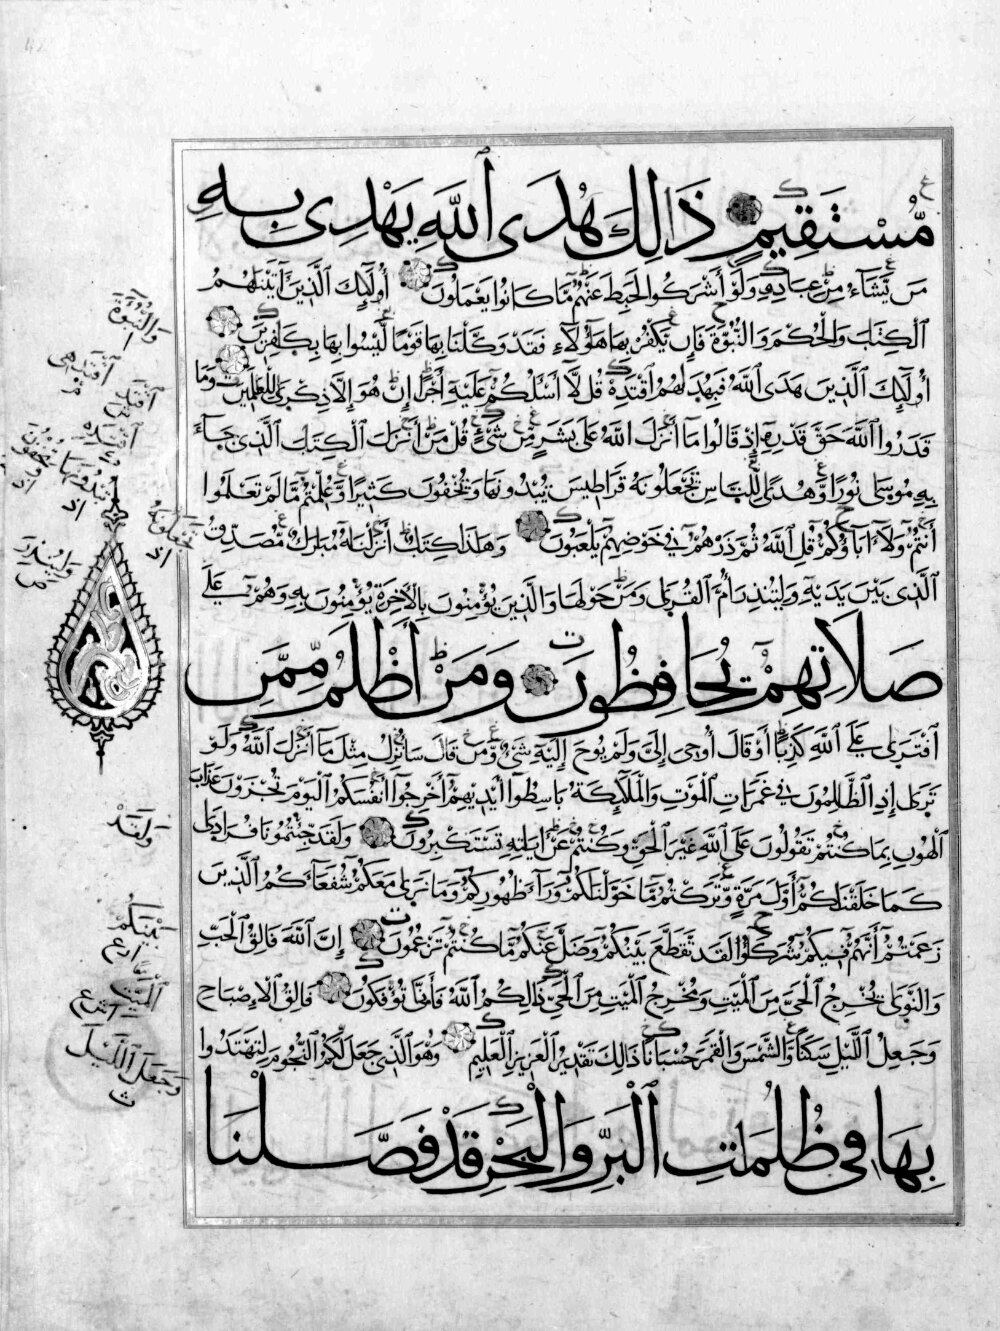 مُّسْتَقِيمٍ ذَالِكَ هُدَى ٱللَّهِ يَهْدِى بِهِ
مَن يَّشَآءُ مِنْ عِبَادِهِ وَلَوْ أَشْرَكُوا لَحَبِطَ عَنْهُم مَّا كَانُوا يَعْمَلُونَ أُولَٰٓئِكَ الَّذِينَ آتَيْنَٰهُمُ
الْكِتَٰبَ وَالْحُكْمَ وَالنُّبُوَّةَ فَإِن يَكْفُرْ بِهَا هَٰٓؤُلَآءِ فَقَدْ وَكَّلْنَا بِهَا قَوْمًا لَّيْسُوا بِهَا بِكَٰفِرِينَ
أُولَٰٓئِكَ الَّذِينَ هَدَى اللَّهُ فَبِهُدَٰهُمُ اقْتَدِهْ قُل لَّا أَسْـَٔلُكُمْ عَلَيْهِ أَجْرًا إِنْ هُوَ إِلَّا ذِكْرَىٰ لِلْعَٰلَمِينَ وَمَا
قَدَرُوا اللَّهَ حَقَّ قَدْرِهِ إِذْ قَالُوا مَا أَنزَلَ اللَّهُ عَلَىٰ بَشَرٍ مِّن شَىْءٍ قُلْ مَنْ أَنزَلَ الْكِتَٰبَ الَّذِى جَآءَ
بِهِ مُوسَىٰ نُورًا وَّهُدًى لِّلنَّاسِ تَجْعَلُونَهُ قَرَاطِيسَ تُبْدُونَهَا وَتُخْفُونَ كَثِيرًا وَّعُلِّمْتُم مَّا لَمْ تَعْلَمُوا
أَنتُمْ وَلَآ ءَابَآؤُكُمْ قُلِ اللَّهُ ثُمَّ ذَرْهُمْ فِى خَوْضِهِمْ يَلْعَبُونَ وَهَٰذَا كِتَٰبٌ أَنزَلْنَٰهُ مُبَٰرَكٌ مُّصَدِّقُ
الَّذِى بَيْنَ يَدَيْهِ وَلِتُنذِرَ أُمَّ الْقُرَىٰ وَمَنْ حَوْلَهَا وَالَّذِينَ يُؤْمِنُونَ بِالْآخِرَةِ يُؤْمِنُونَ بِهِ وَهُمْ عَلَىٰ
صَلَاتِهِمْ يُحَافِظُونَ وَمَنْ أَظْلَمُ مِمَّنِ
افْتَرَىٰ عَلَى اللَّهِ كَذِبًا أَوْ قَالَ أُوحِىَ إِلَىَّ وَلَمْ يُوحَ إِلَيْهِ شَىْءٌ وَّمَن قَالَ سَأُنزِلُ مِثْلَ مَا أَنزَلَ اللَّهُ وَلَوْ
تَرَىٰ إِذِ الظَّٰلِمُونَ فِى غَمَرَاتِ الْمَوْتِ وَالْمَلَٰٓئِكَةُ بَاسِطُوا أَيْدِيهِمْ أَخْرِجُوا أَنفُسَكُمُ الْيَوْمَ تُجْزَوْنَ عَذَابَ
الْهُونِ بِمَا كُنتُمْ تَقُولُونَ عَلَى اللَّهِ غَيْرَ الْحَقِّ وَكُنتُمْ عَنْ آيَٰتِهِ تَسْتَكْبِرُونَ وَلَقَدْ جِئْتُمُونَا فُرَادَىٰ
كَمَا خَلَقْنَٰكُمْ أَوَّلَ مَرَّةٍ وَّتَرَكْتُم مَّا خَوَّلْنَٰكُمْ وَرَآءَ ظُهُورِكُمْ وَمَا نَرَىٰ مَعَكُمْ شُفَعَآءَكُمُ الَّذِينَ
زَعَمْتُمْ أَنَّهُمْ فِيكُمْ شُرَكَٰٓؤُا لَقَد تَّقَطَّعَ بَيْنَكُمْ وَضَلَّ عَنكُم مَّا كُنتُمْ تَزْعُمُونَ إِنَّ اللَّهَ فَالِقُ الْحَبِّ
وَالنَّوَىٰ يُخْرِجُ الْحَىَّ مِنَ الْمَيِّتِ وَمُخْرِجُ الْمَيِّتِ مِنَ الْحَىِّ ذَٰلِكُمُ اللَّهُ فَأَنَّىٰ تُؤْفَكُونَ فَالِقُ الْإِصْبَاحِ
وَجَعَلَ اللَّيْلَ سَكَنًا وَّالشَّمْسَ وَالْقَمَرَ حُسْبَانًا ذَالِكَ تَقْدِيرُ الْعَزِيزِ الْعَلِيمِ وَهُوَ الَّذِى جَعَلَ لَكُمُ النُّجُومَ لِتَهْتَدُوا
بِهَا فِى ظُلُمَاتِ الْبَرِّ وَالْبَحْرِ قَدْ فَصَّلْنَا
وَالنُّبُوَّةَ
تُبْدُونَهَا تُخْفُونَ
تَجْعَلُونَهُ
وَلِيُنذِرَ
وَلَقَدْ
بَيْنَكُمْ
الْمَيِّتِ
وَجَعَلَ اللَّيْلَ